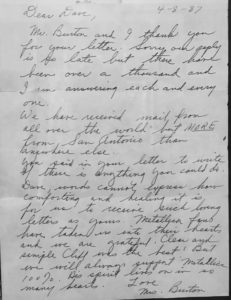 Dear Dave, 4-8-87
Mr. Burton and I thank you
for your letter. Sorry our reply
is so late but there have
been over a thousand and
I am answering each and every
one.
We have received mail from
all over the world but MORE
from San Antonio than
anywhere else.
You said in your letter to write
if there is anything you could do.
Dave, words cannot express how
comforting and healing it is
for us to receive such loving
letters as yours. Metallica fans
have taken us into their hearts
and we are grateful. Clean and
simple Cliff was the best! But
we will always support Metallica
100%. His spirit lives on in so
many hearts. Love
Mrs. Burton